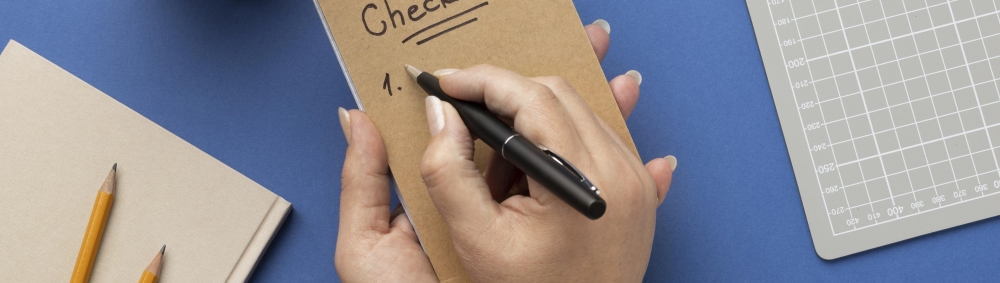 Check
1.
170
190
200
210
220
230
240
250
260
270
420
410
400
390
380
370
360